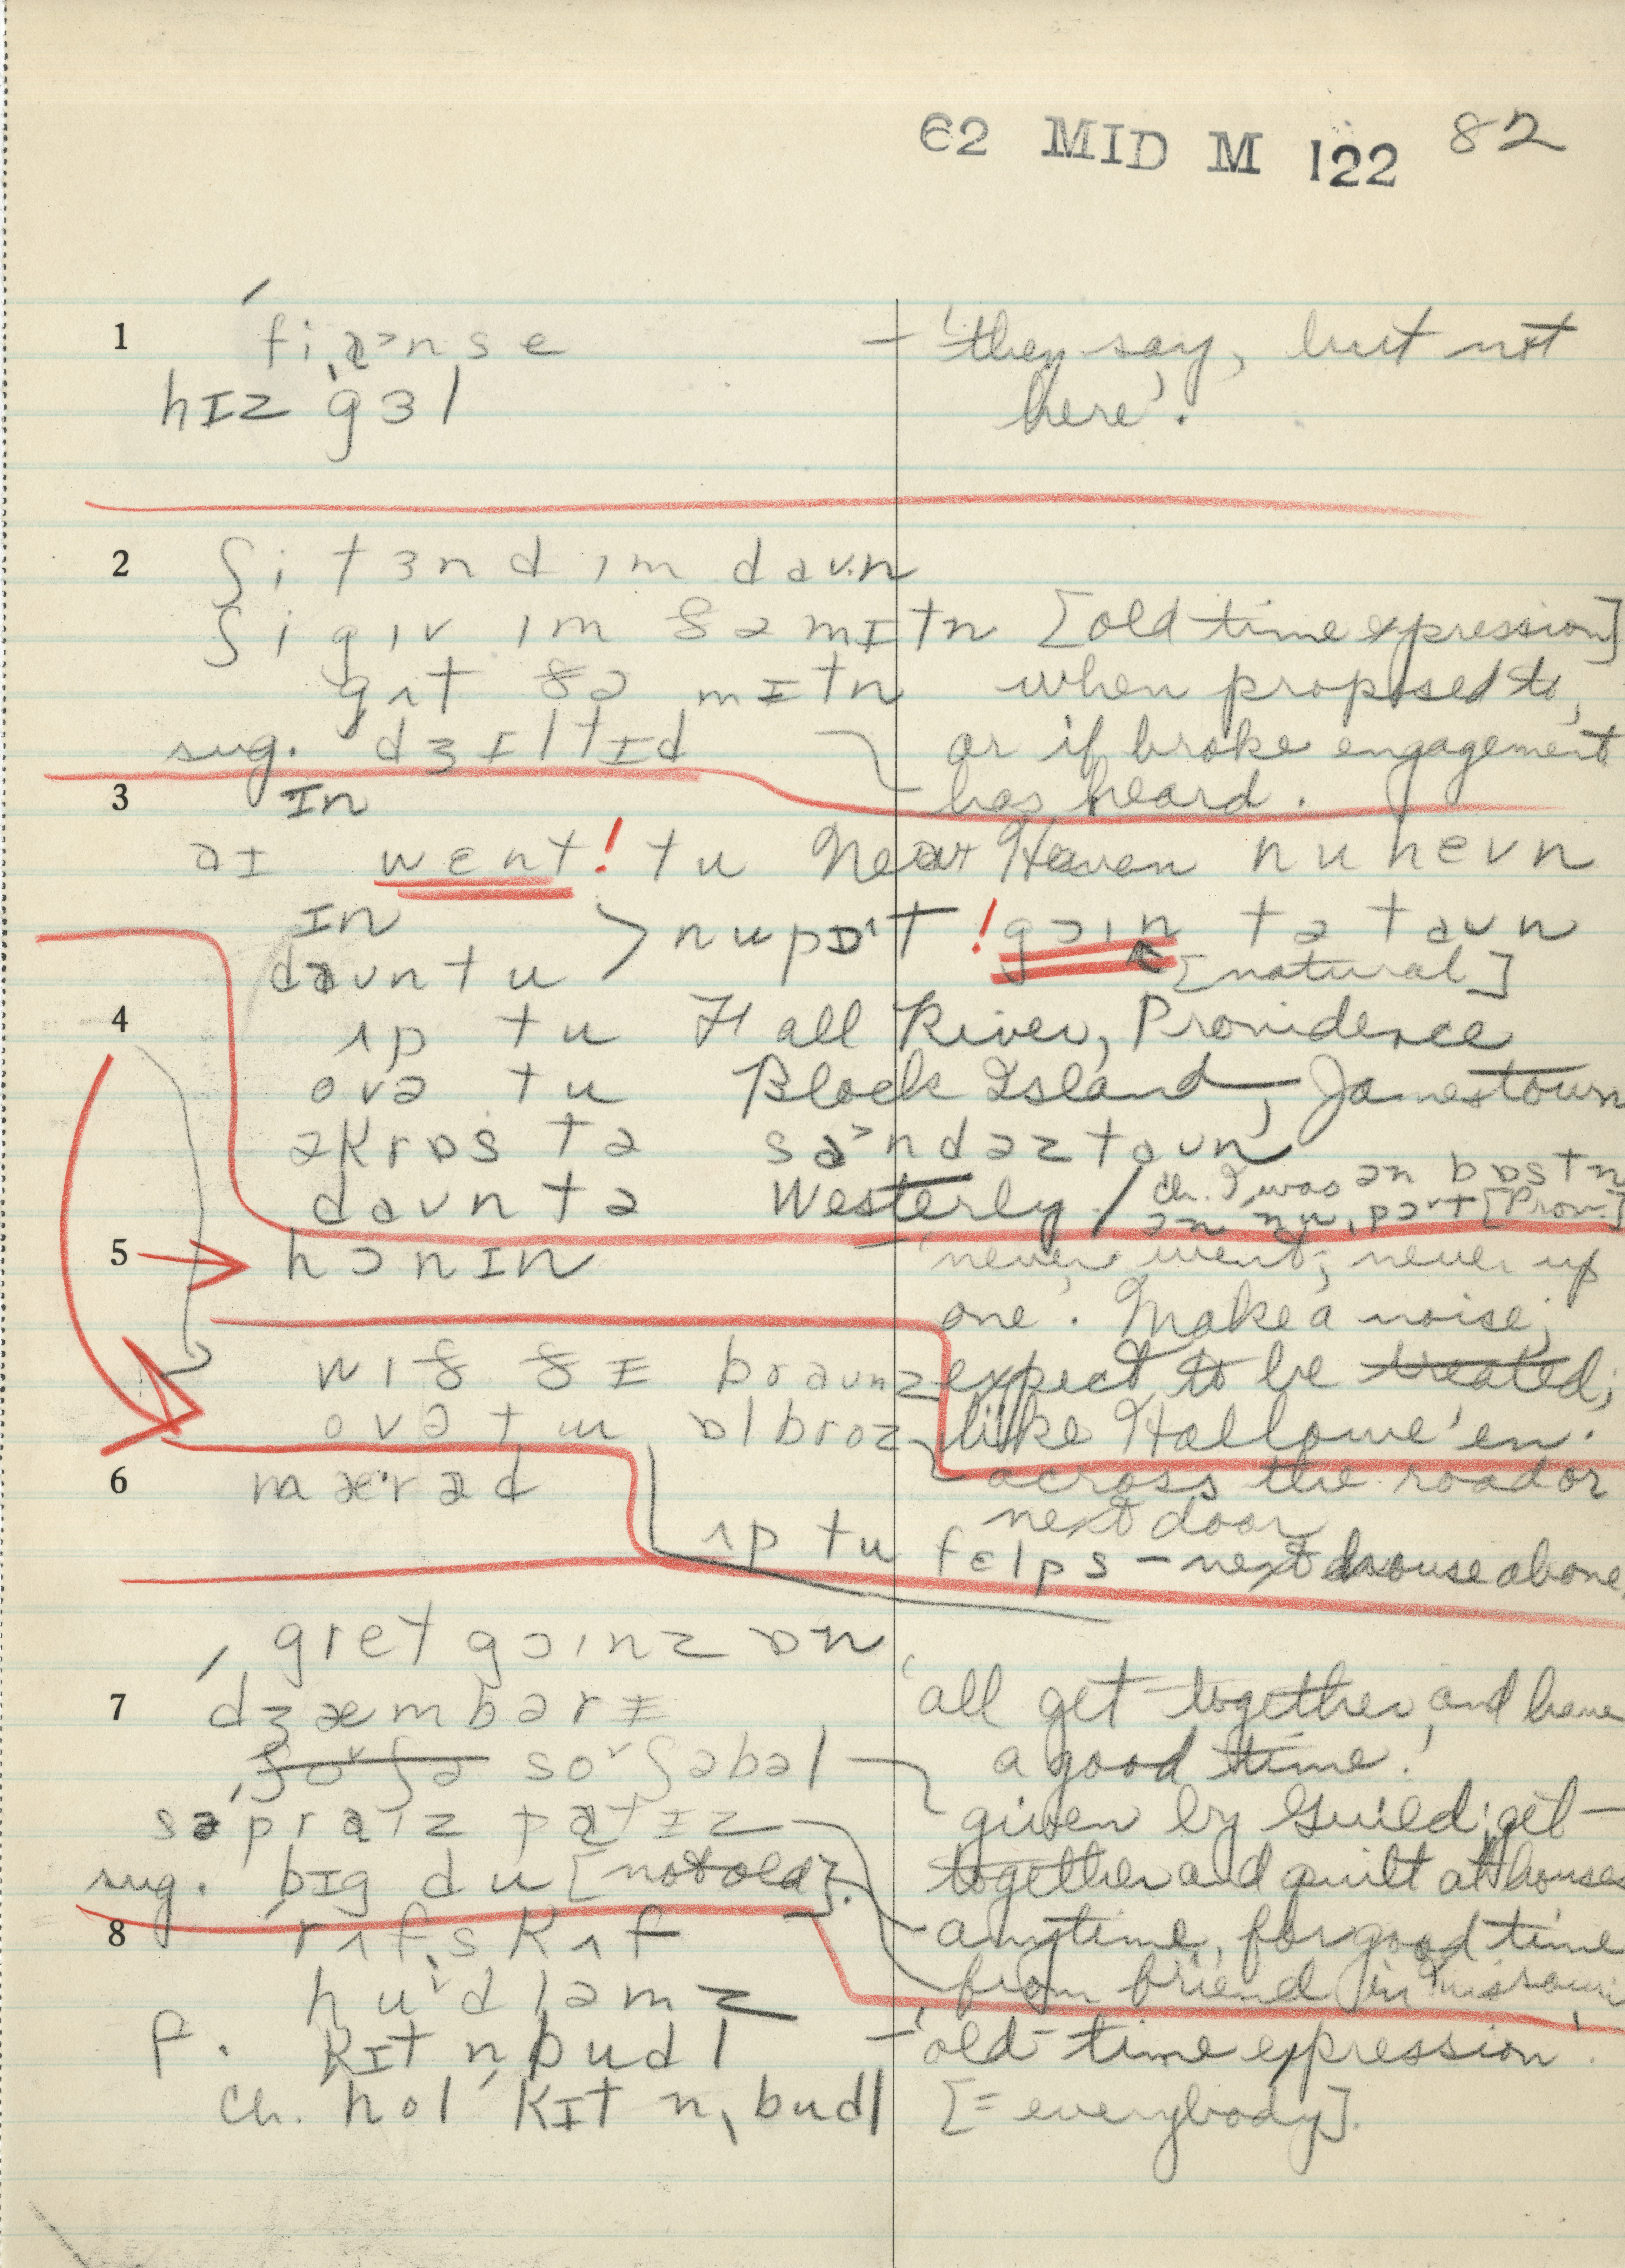 62 MID M 122 82
1 fiˌɑ˃nse — 'they say, but not
hɪz gɜl here'.
2 ʃi tɜnd ɪm daʊn
ʃi gɪv ɪm ðə mɪtn [old time expression]
gʌt ðə mɪtn when proposed to,
sug. dʒɪltɪd or if broke engagement
has heard.
3 ɪn
aɪ wɛnt! tu Near Haven nuhevn
ɪn > nupɒˑt !gɔɪn tə taʊn
daʊn tu [natural]
4 ʌp tu Fall River, Providence
ovə tu Block Island, Jamestown
əkrɒs tə sa˃ndəztaʊn
daʊn tə Westerly / ch. I was ɔn bɒstn
[Prov.]
5 hɔnɪn 'never went; never up
one'. Make a noise;
wɪð ðɪ braʊnz expect to be treated;
ovə tu ɒlbroz like Hallowe'en.
6 mæˑrəd across the road or
next door
ʌp tu fɛlps — next house above
gret goɪnz ɒn
7 dʒæmbərɪ 'all get together, and have
so˅ʃəbəl a good time.'
səpraɪz patɪz given by Guild; get-
sug. bɪg du [not old]. together and quilt at houses
8 rɪfˌskʌf anytime, for good time
hu˅dləmz from friend in Missouri
F. kɪt nˌbudl — 'old-time expression'.
ch. hol kɪt nˌbudl [= everybody].